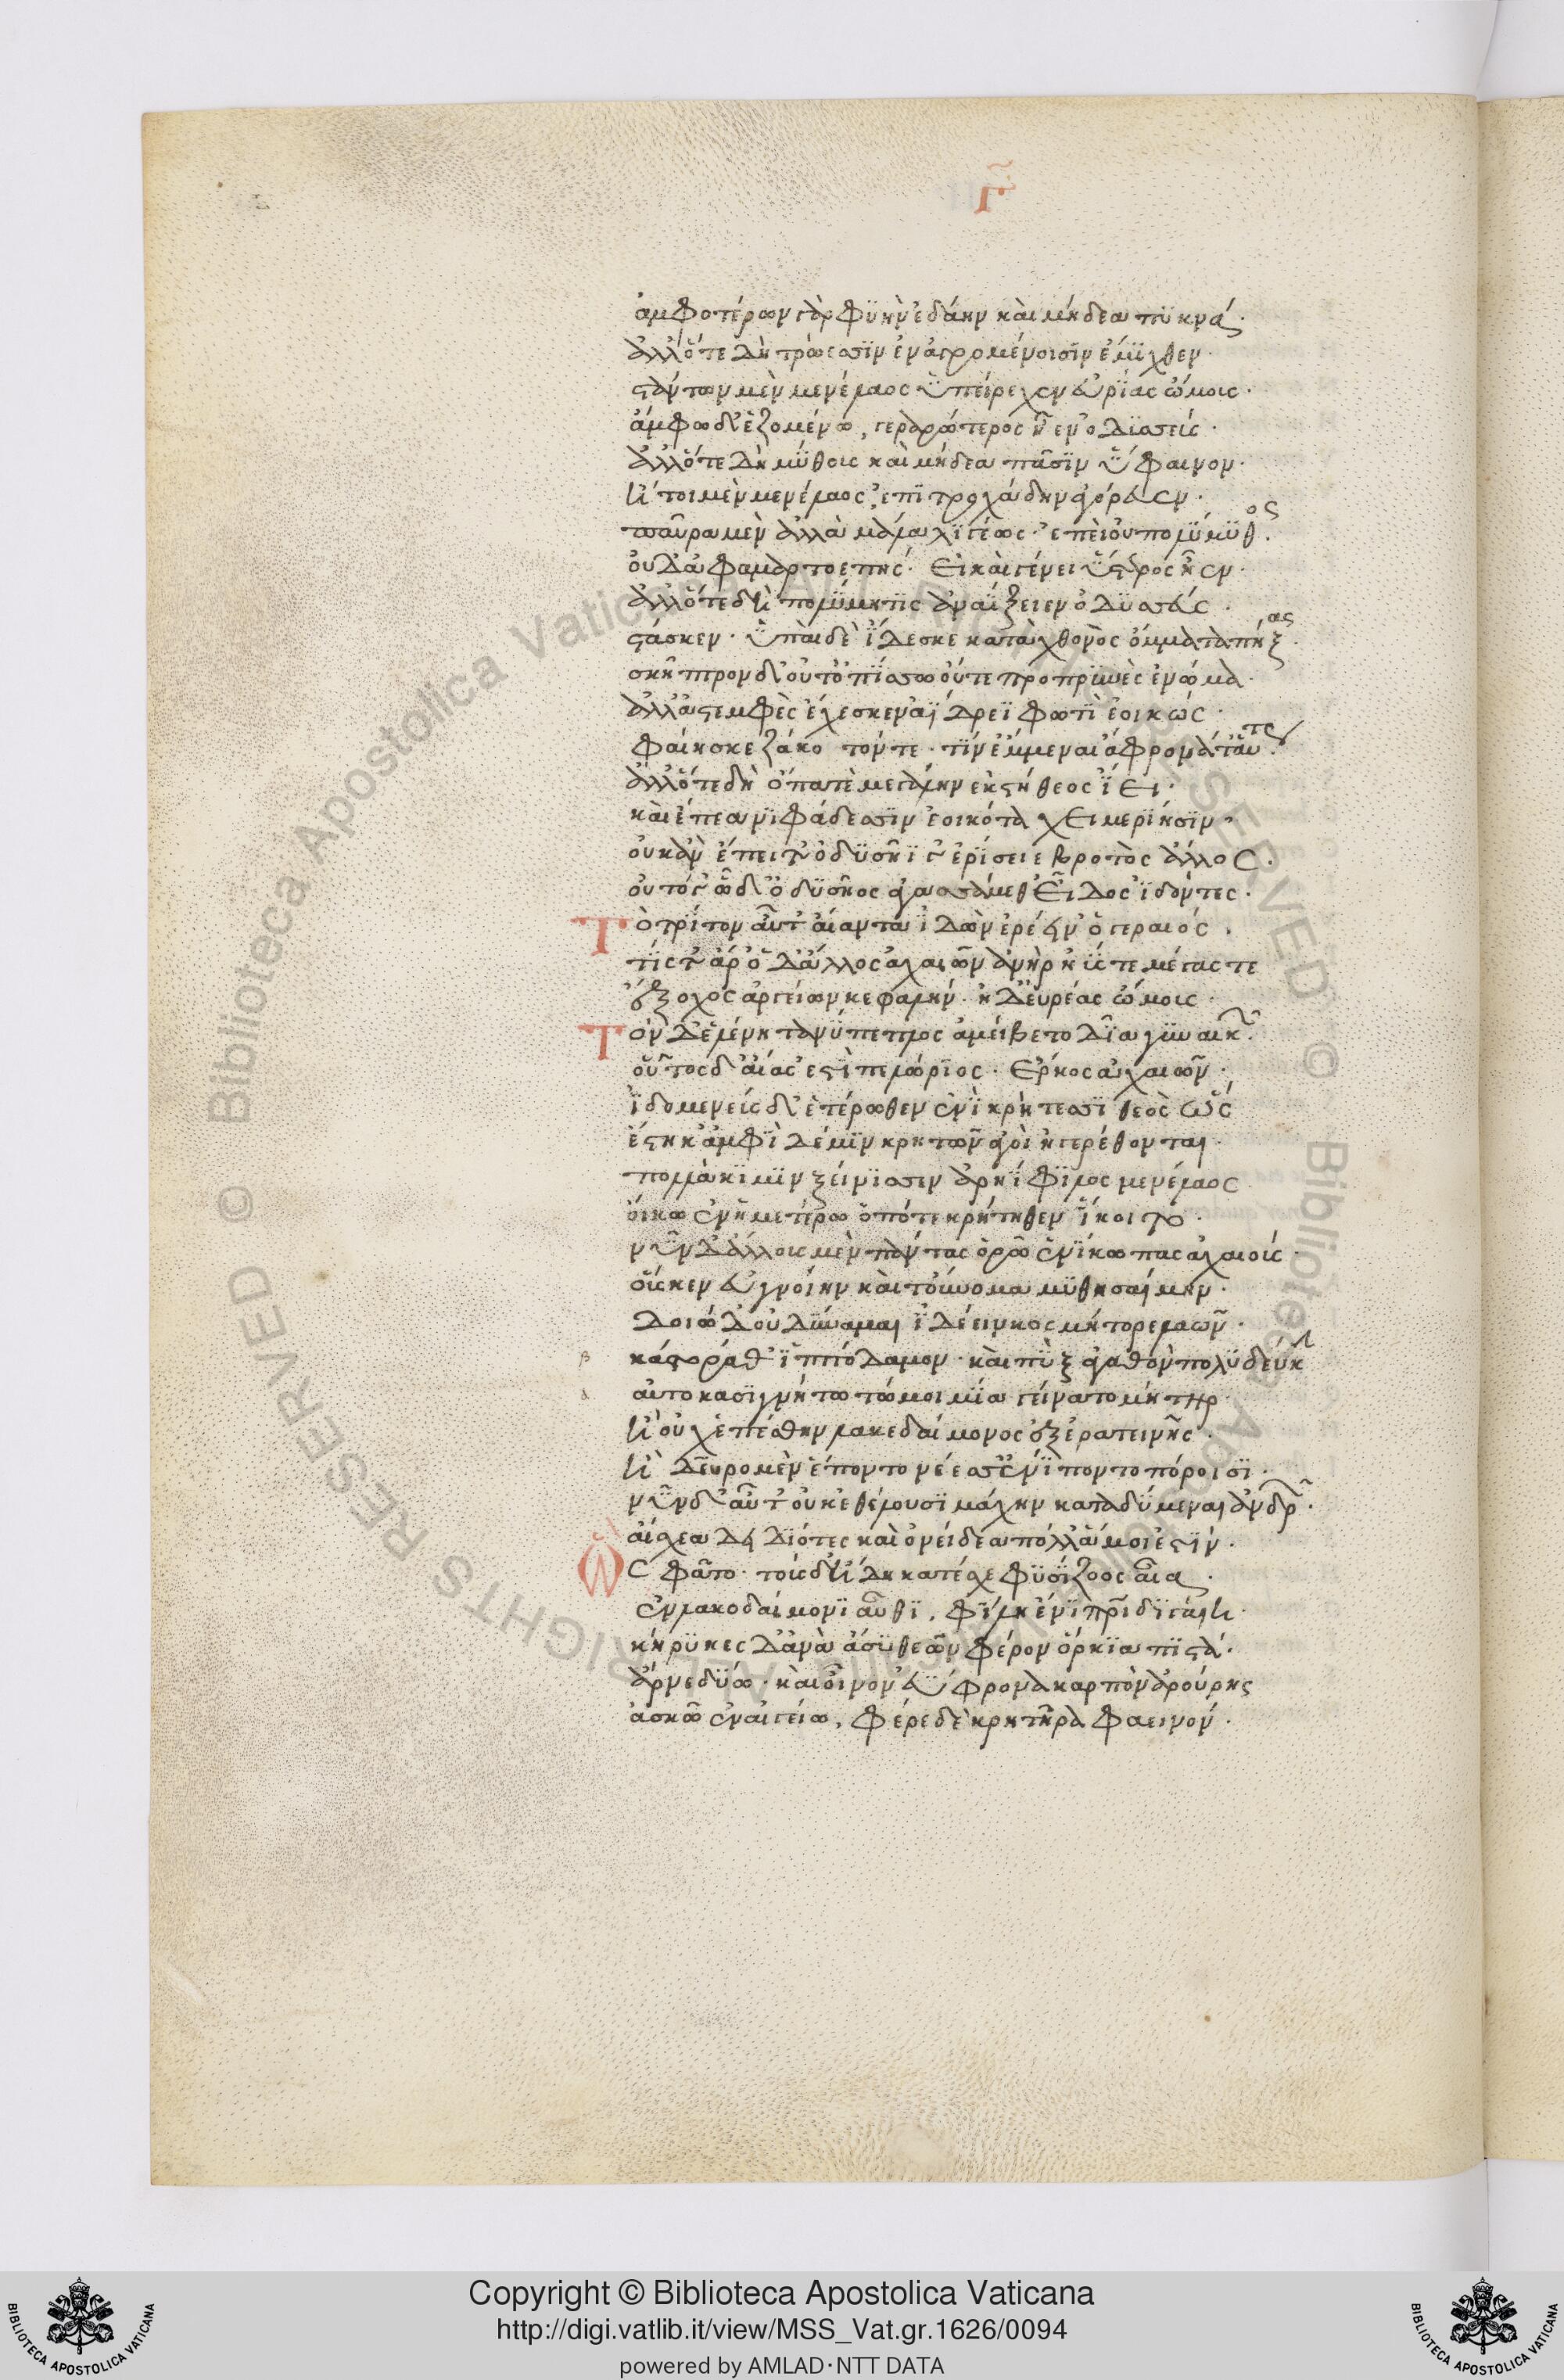 Γ
ἀμφοτέρων γὰρ φϋὴν ἐδάην καὶ μήδεα πϋκνά.
ἀλλ' ὅτε δὴ τρώεσσϊν ἐν ἀγρομένοισϊν ἔμϊχθεν.
στάντων μὲν μενέλαος ὑπείρεχεν εὐρέας ὤμοις.
ἄμφω δ' ἑζομένω, γεραρώτερος ἦεν ὀδϋσσεύς.
ἀλλ' ὅτε δὴ μύθους καὶ μήδεα πᾶσϊν ὕφαινον.
ἤτοι μὲν μενέλαος ἐπϊτροχάδην ἀγόρευεν.
παῦρα μὲν ἀλλὰ μάλα λϊγέως· ἐπεὶ οὐ πολύμϋθος.
οὐδ' ἀφαμαρτοεπής. εἰ καὶ γένει ὕστερος ἦεν.
ἀλλ' ὅτε δὴ πολύμητϊς ἀναΐξειεν ὀδϋσσεύς.
στάσκεν. ὑπαὶ δὲ ἴδεσκε κατὰ χθονὸς ὄμματα πήξας.
σκῆπτρον δ' οὔτ' ὀπίσσω οὔτε προπρϊνὲς ἐνώμα.
ἀλλ' ἀστεμφὲς ἔχεσκεν ἀΐδρεϊ φωτὶ ἐοικώς.
φαίης κε ζάκοτόν τε. τϊν' ἔμμεναι ἄφρονά τ' αὔτως.
ἀλλ' ὅτε δὴ ὄπα τε μεγάλην ἐκ στήθεος ἵει.
καὶ ἔπεα νϊφάδεσσϊν ἐοικότα χειμερίῃσϊν.
οὐκ ἂν ἔπειτ' ὀδϋσῆΐ γ' ἐρίσειε βροτὸς ἄλλος.
οὐ τότε γ' ὧδ' ὀδϋσῆος ἀγασσάμεθ' εἶδος ἰδόντες.
Τὸ τρίτον αὖτ' αἴαντα ἰδὼν ἐρέειν' ὁ γεραιός.
τίς τ' ἄρ' ὅδ' ἄλλος ἀχαιῶν ἀνὴρ ἠΰς τε μέγας τε
ἔξοχος ἀργείων κεφαλήν. ἠδ' εὐρέας ὤμους.
Τὸν δ' ἑλένη τανύπεπλος ἀμείβετο δῖα γϋναικ.
οὗτος δ' αἴας ἐστὶ πελώρϊος. ἕρκος ἀχαιῶν.
ἰδομενεὺς δ' ἑτέρωθεν ἐνὶ κρήτεσσϊ θεὸς ὣς
ἕστηκ' ἀμφὶ δέ μϊν κρητῶν ἀγοὶ ἠγερέθονται.
πολλάκϊ μϊν ξείνϊσσεν ἀρηΐφϊλος μενέλαος
οἴκω ἐν ἡμετέρω ὁπότε κρήτηθεν ἵκοιτο.
νῦν δ' ἄλλους μὲν πάντας ὁρῶ ἑλίκωπας ἀχαιούς.
οὕς κεν εὖ γνοίην καὶ τοὔνομα μϋθησαίμην.
δοιὼ δ' οὐ δύναμαι ἰδέειν κοσμήτορε λαῶν.
β κάστορά θ' ἱππόδαμον. καὶ πὺξ ἀγαθὸν πολϋδεύκ
α αὐτοκασϊγνήτω τώ μοι μία γείνατο μήτηρ.
ἢ οὐχ ἑπέσθην λακεδαίμονος ἐξ ἐρατεινῆς.
ἢ δεῦρο μὲν ἕποντο νέεσσ' ἔνϊ ποντοπόροισϊ.
νῦν δ' αὖτ' οὐκ ἐθέλουσϊ μάχην καταδύμεναι ἀνδρ.
αἴσχεα δειδϊότες καὶ ὀνείδεα πόλλ' ἅ μοι ἐστίν.
Ὣς φάτο. τοὺς δ' ἤδη κατέχε φϋσίζοος αἶα.
ἐν λακεδαίμονϊ αὖθϊ, φίλῃ ἐνὶ πατρίδϊ γαίῃ.
κήρϋκες δ' ἀνὰ ἄστϋ θεῶν φέρον ὅρκϊα πϊστά.
ἄρνε δύω. καὶ οἶνον ἐΰφρονα καρπὸν ἀρούρης
ἀσκῶ ἐν αἰγείω, φέρε δὲ κρητῆρα φαεινόν.
Copyright © Biblioteca Apostolica Vaticana
http://digi.vatlib.it/view/MSS_Vat.gr.1626/0094
powered by AMLAD·NTT DATA